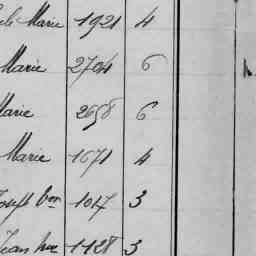 Marie 1921 4
Marie 2704 6
Marie 2658 6
Marie 1671 4
Joseph 1017 3
Jean 1128 3